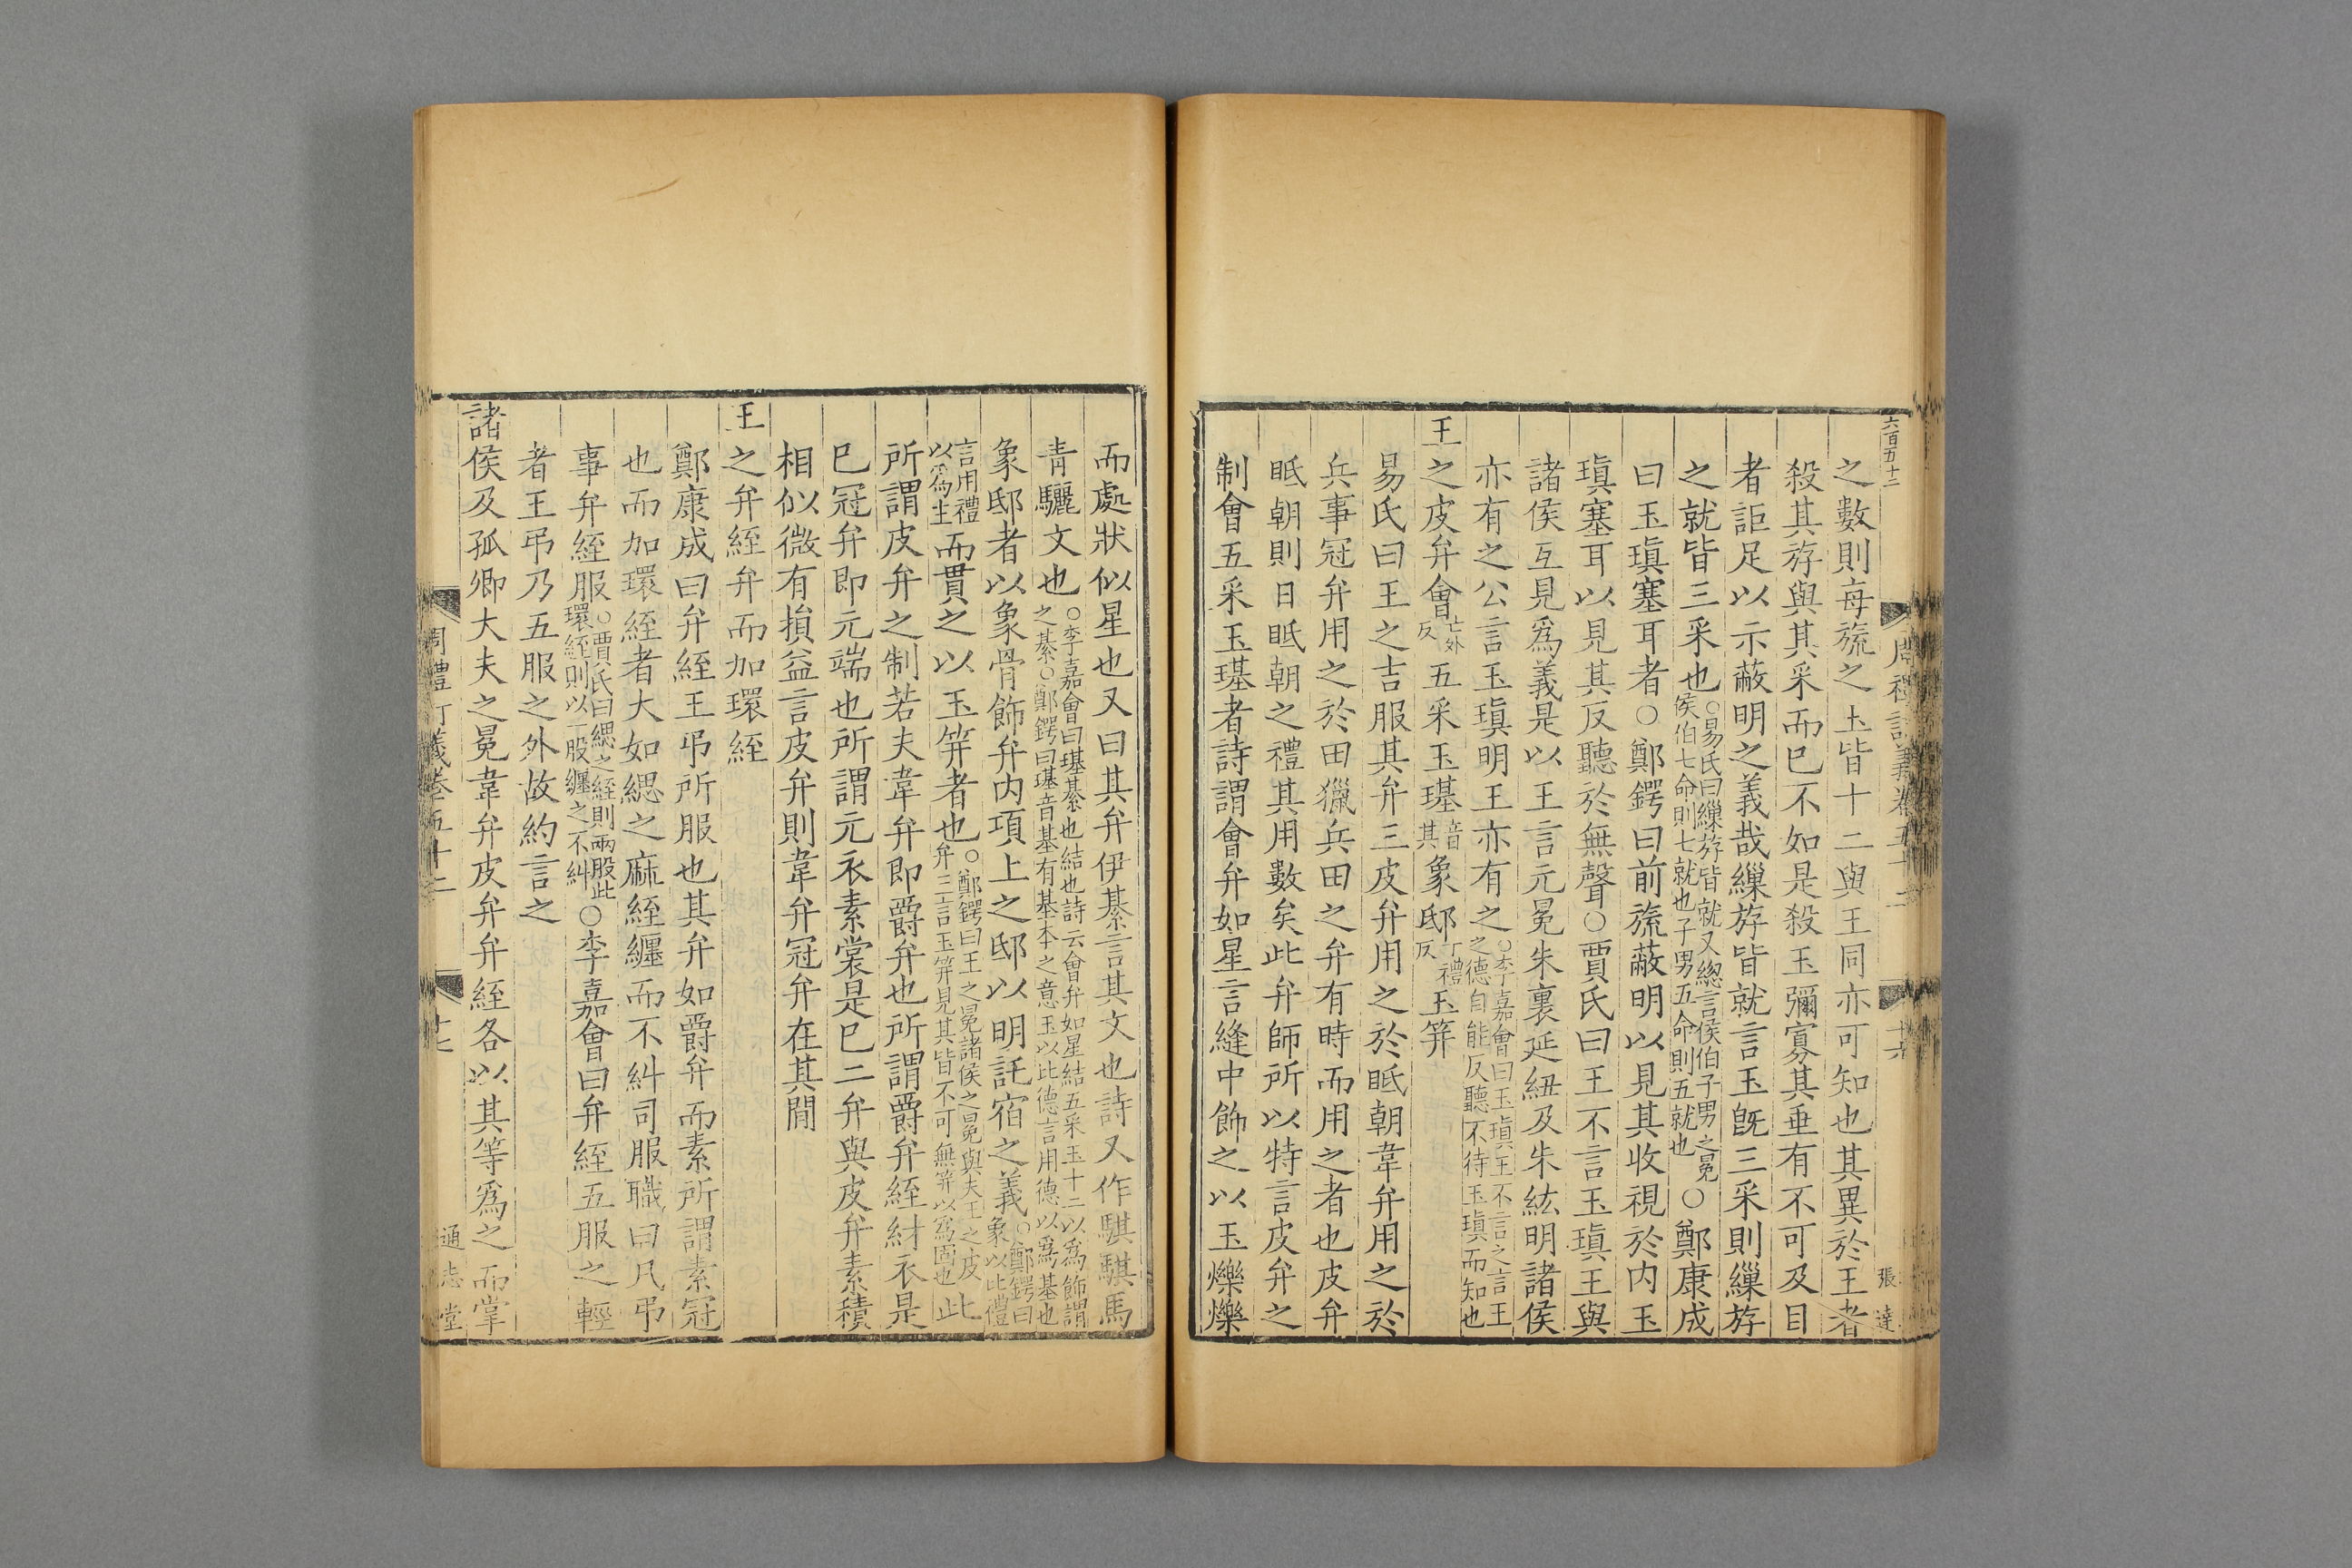 六百五十二
周禮訂義卷五十二
十六
張達
之數則每旒之玉皆十二與王同亦可知也其異於王者
殺其斿與其采而已不如是殺玉彌寡其垂有不可及目
者詎足以示蔽明之義哉繅斿皆就言玉旣三采則繅斿
之就皆三采也○易氏曰繅斿皆就又緫言侯伯子男之冕侯伯七命則七就也子男五命則五就也○鄭康成
曰玉瑱塞耳者○鄭鍔曰前旒蔽明以見其收視於内玉
瑱塞耳以見其反聽於無聲○賈氏曰王不言玉瑱王與
諸侯互見爲義是以王言元冕朱裏延紐及朱紘明諸侯
亦有之公言玉瑱明王亦有之○李嘉會曰玉瑱王不言之言王之德自能反聽不待玉瑱而知也
王之皮弁會亡外反五采玉璂音其象邸丁禮反玉笄
易氏曰王之吉服其弁三皮弁用之於眡朝韋弁用之於
兵事冠弁用之於田獵兵田之弁有時而用之者也皮弁
眡朝則日眡朝之禮其用數矣此弁師所以特言皮弁之
制會五采玉璂者詩謂會弁如星言縫中飾之以玉爍爍
而處狀似星也又曰其弁伊綦言其文也詩又作騏騏馬
青驪文也○李嘉會曰璂綦也結也詩云會弁如星結五采玉十二以爲飾謂之綦○鄭鍔曰璂音基有基本之意玉以此德言用德以爲基也
象邸者以象骨飾弁内項上之邸以明託宿之義○鄭鍔曰象以此禮
言用禮以爲主而貫之以玉笄者也○鄭鍔曰王之冕諸侯之冕與夫王之皮弁三言玉笄見其皆不可無笄以爲固也此
所謂皮弁之制若夫韋弁即爵弁也所謂爵弁絰紂衣是
已冠弁即元端也所謂元衣素裳是已二弁與皮弁素積
相似微有損益言皮弁則韋弁冠弁在其間
王之弁絰弁而加環絰
鄭康成曰弁絰王弔所服也其弁如爵弁而素所謂素冠
也而加環絰者大如緦之麻絰纒而不糾司服職曰凡弔
事弁絰服○賈氏曰緦之絰則兩股此環絰則以一股纒之不糾○李嘉會曰弁絰五服之輕
者王弔乃五服之外故約言之
諸侯及孤卿大夫之冕韋弁皮弁弁絰各以其等爲之而掌
周禮訂義卷五十二
十七
通志堂